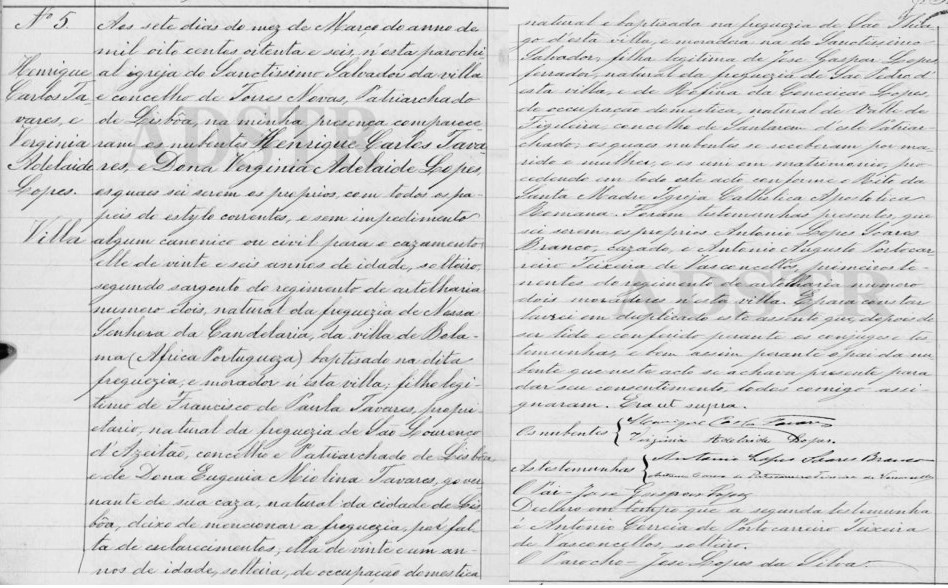 Nº 5
Henrique
Carlos Ta-
vares, e
Verginia
Adelaide
Lopes.
Villa
Aos sete dias do mez de Março do anno de
mil oito centos oitenta e seis, n'esta parochi-
al igreja do Sanctissimo Salvador da villa
e concelho de Torres Novas, Patriarchado
de Lisbôa, na minha presença comparece-
ram os nubentes Henrique Carlos Tava-
res, e Dona Verginia Adelaide Lopes,
os quaes sei serem os proprios, com todos os pa-
peis do estylo correntes, e sem impedimento
algum canonico ou civil para o cazamento;
elle de vinte e seis annos de idade, solteiro,
segundo sargento do regimento de artelharia
numero dois, natural da freguezia de Nossa
Senhora da Candelaria, da villa de Bola-
ma (Africa Portugueza) baptisado na dita
freguezia, e morador n'esta villa; filho legi-
timo de Francisco de Paula Tavares, propri-
etario, natural da freguezia de São Lourenço
d'Azeitão, concelho e Patriarchado de Lisbôa,
e de Dona Eugenia Miolina Tavares, gover-
nante de sua caza, natural da cidade de Lis-
bôa, deixo de mencionar a freguezia, por fal-
ta de esclarecimentos; ella de vinte e um an-
nos de idade, solteira, de occupação domestica,
natural e baptisada na freguezia de São Thia-
go d'esta villa, e moradora na do Sanctissimo
Salvador, filha legitima de José Gaspar Lopes,
ferrador, natural da freguezia de São Pedro d'
esta villa, e de Rofina da Conceição Lopes,
de occupação domestica, natural de Valle de
Figueira, concelho de Santarem d'este Patriar-
chado; os quaes nubentes se receberam por ma-
rido e mulher, e os uni em matrimonio, pro-
cedendo em todo este acto conforme o Rito da
Santa Madre Igreja Catholica Apostolica
Romana. Foram testemunhas presentes, que
sei serem os proprios Antonio Lopes Soares
Branco, cazado, e Antonio Augusto Portocar-
reiro Teixeira de Vasconcellos, primeiros te-
nentes do regimento de artelharia numero
dois moradores n'esta villa. E para constar
lavrei em duplicado este assento que, depois de
ser lido e conferido perante os conjuges e tes-
temunhas, e bem assim perante o pai da nu-
bente que neste acto se achava presente para
dar seu consentimento todos comigo assi-
gnaram. Era ut supra.
Os nubentes { Henrique Carlos Tavares
Virginia Adelaide Lopes.
As testemunhas { Antonio Lopes Soares Branco
Antonio Correia de Portocarreiro Teixeira de Vasconcellos
O Pai - José Gaspar Lopes
Declaro em tempo que a segunda testemunha
é Antonio Correia de Portocarreiro Teixeira
de Vasconcellos, solteiro.
O Parocho - José Lopes da Silva.
ADSTR
ADSTR